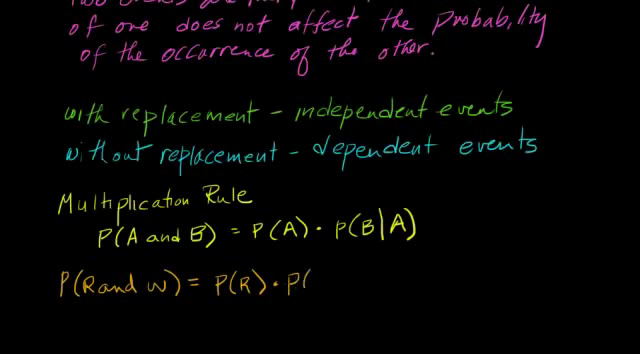 of one does not affect the probability
of the occurrence of the other.
with replacement - independent events
without replacement - dependent events
Multiplication Rule
P(A and B) = P(A) · P(B|A)
P(R and W) = P(R) · P(